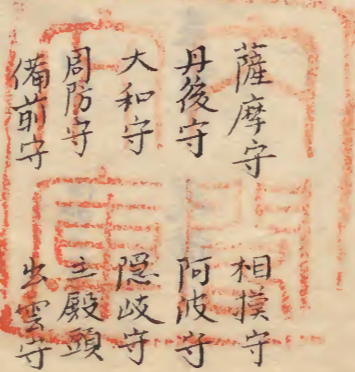 薩摩守 相摸守
丹後守 阿波守
大和守 隠岐守
周防守 主殿頭
備前守 出雲守